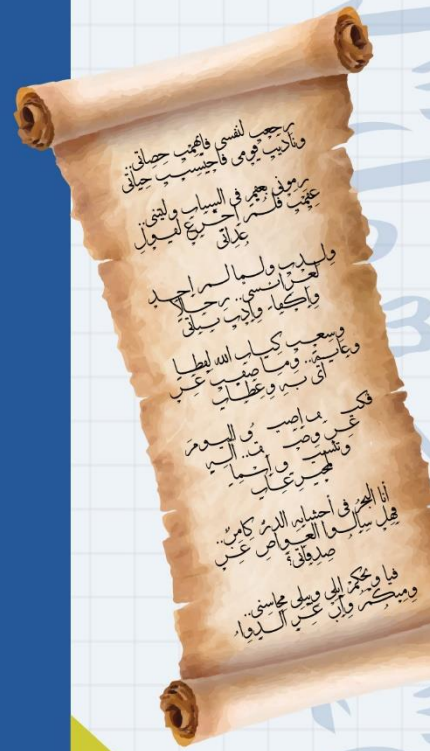 رجعت لنفسي فاتهمت حصاتي
وناديت قومي فاحتسبت حياتي
رموني بعقم في الشباب وليتني..
عقمت فلم أجزع لقول
عداتي
ولدت ولما لم أجد
لعرائسي.. رجالا
وأكفاء وأدت بناتي
وسعت كتاب الله لفظا
وغاية.. وما ضقت عن
آي به وعظات
اليوم
عن
أنا البحرُ في أحشائِه الدرُّ كامنٌ..
فهل سألوا الغواص عن
صدفاتي؟
فيا ويحكم أبلى وتبلى محاسني..
ومنكم وإن عز الدواء